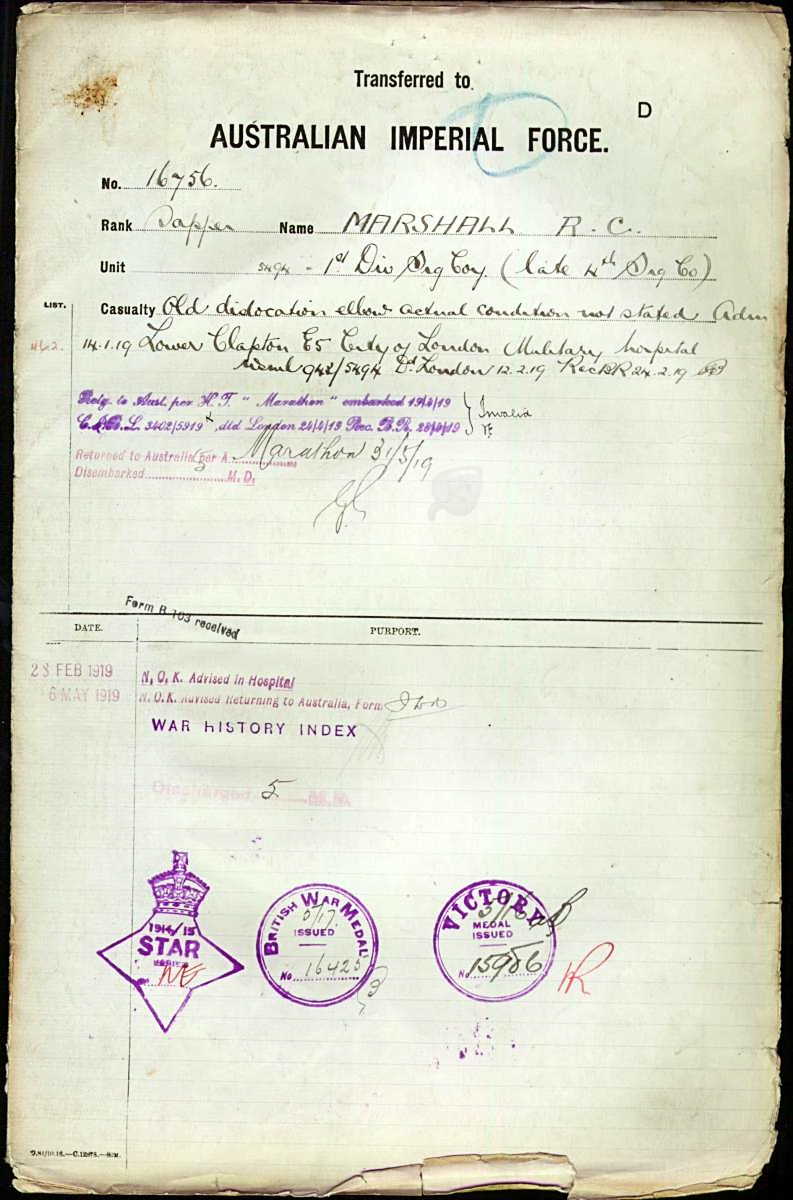 Transferred to
D
AUSTRALIAN IMPERIAL FORCE.
No. 16756.
Rank Sapper Name MARSHALL R. C.
Unit 5494 - 1st Div Sig Coy. (late 4th Sig Co)
LIST.
Casualty Old dislocation elbow actual condition not stated Adm
462. 14.1.19 Lower Clapton E5 City of London Military hospital
942/5494 Dd. London 12.2.19 Rec BR 24.2.19
Retg. to Aust. per H. T. "Marathon" embarked 19/4/19
C.L.B.L. 3402/5919, dtd London 24/4/19 Rec. B.R. 28/4/19 } Invalid
Returned to Australia per A. Marathon 31/5/19
Disembarked 3 M. D.
Form B 103 received
DATE. PURPORT.
28 FEB 1919 N. O. K. Advised in Hospital
6 MAY 1919 N. O. K. Advised Returning to Australia, Form
WAR HISTORY INDEX
Discharged 5 M. D.
1914/15
STAR
ISSUED
No. NE
BRITISH WAR MEDAL
ISSUED
No. 16425
VICTORY
MEDAL
ISSUED
No. 15986
HR